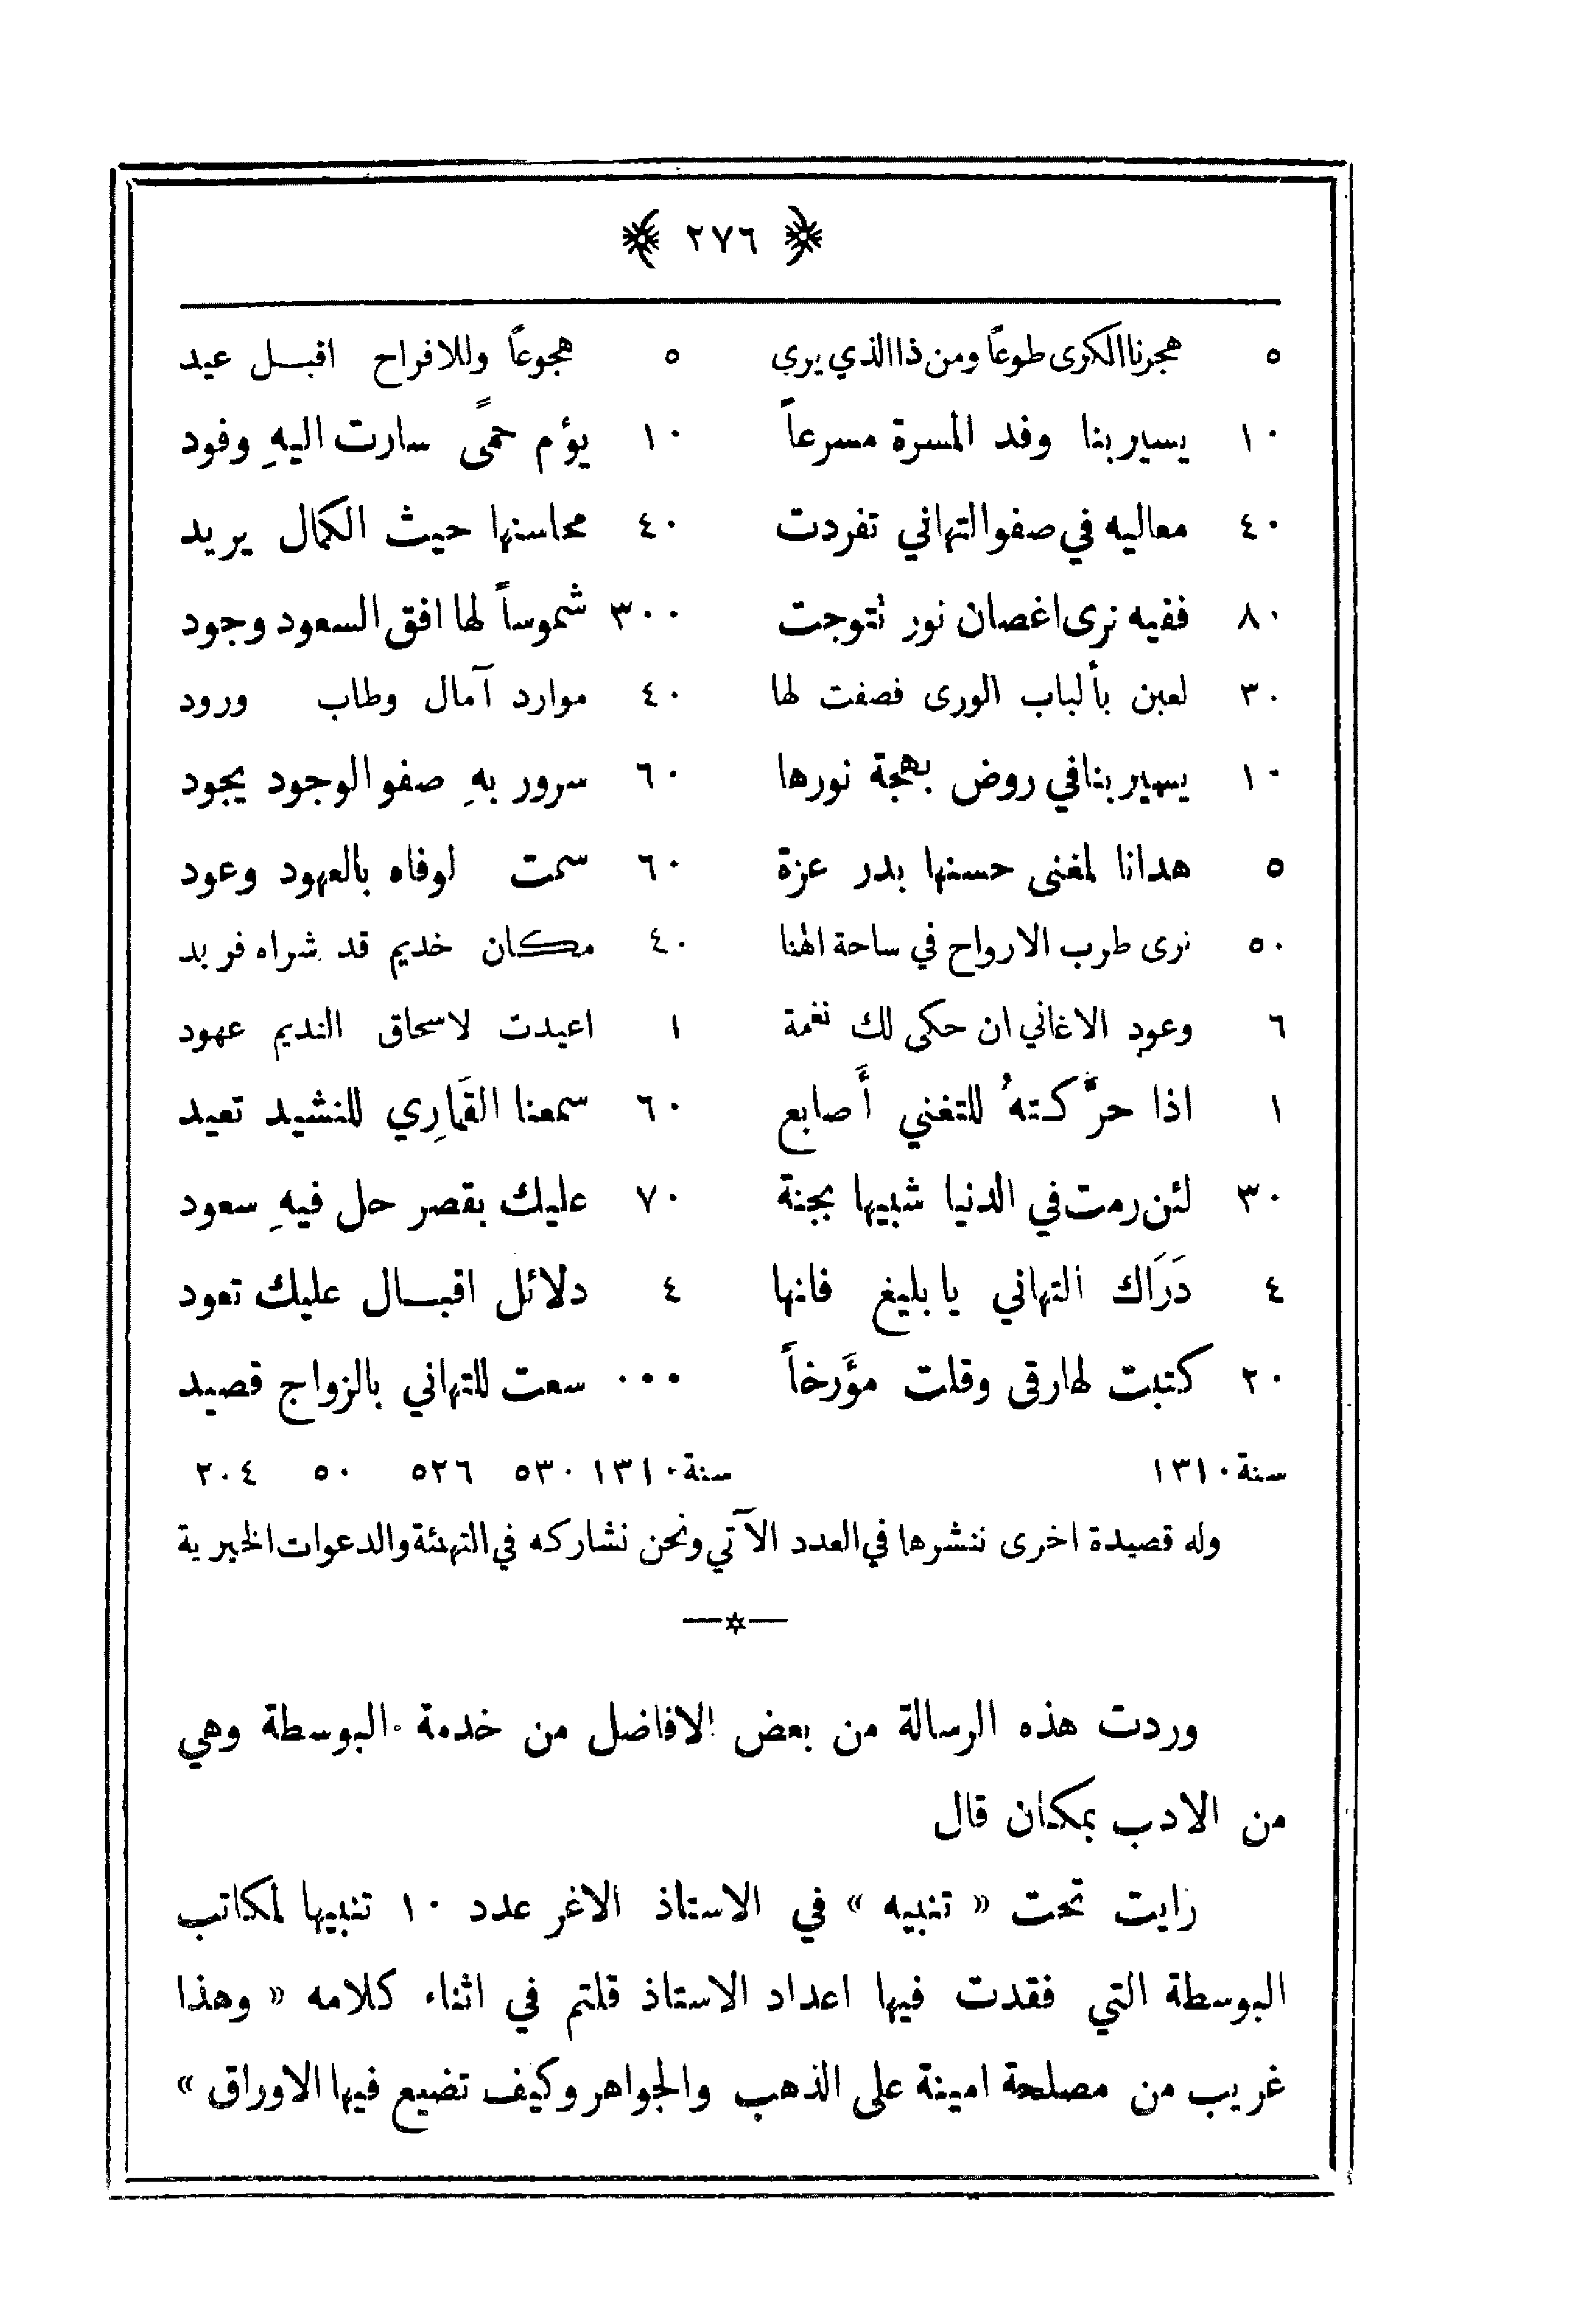 ﴿ ٢٧٦ ﴾
٥ هجرنا الكرى طوعاً ومن ذا الذي يرى ٥ هجوعاً وللافراح اقبــل عيد
١٠ يسير بنا وفد المسرة مسرعاً ١٠ يؤم حمىً سارت اليهِ وفود
٤٠ معاليه في صفو التهاني تفردت ٤٠ محاسنها حيث الكمال يريد
٨٠ ففيه نرى اغصان نور نتوجت ٣٠٠ شموساً لها افق السعود وجود
٣٠ لعبن بألباب الورى فصفت لها ٤٠ موارد آمال وطاب ورود
١٠ يسير بنا في روض بهجة نورها ٦٠ سرور بهِ صفو الوجود يجود
٥ هدانا لمغنى حسنها بدر عزة ٦٠ سمت لوفاه بالعهود وعود
٥٠ نرى طرب الارواح في ساحة الهنا ٤٠ مكان خديم قد شراه فريد
٦ وعودِ الاغاني ان حكى لك نغمة ١ اعيدت لاسحاق النديم عهود
١ اذا حرَّكتهُ للتغني أَصابع ٦٠ سمعنا القَمارِي للنشيد تعيد
٣٠ لئن رمت في الدنيا شبيها بجنة ٧٠ عليك بقصر حل فيهِ سعود
٤ دَرَاك التهاني يا بليغ فانها ٤ دلائل اقبــال عليك تعود
٢٠ كتبت لها رقى وقلت مؤَرخاً ٠٠٠ سعت للتهاني بالزواج قصيد
سنة ١٣١٠ سنة ١٣١٠ ٥٣٠ ٥٢٦ ٥٠ ٢٠٤
وله قصيدة اخرى ننشرها في العدد الآتي ونحن نشاركه في التهنئة والدعوات الخيرية
وردت هذه الرسالة من بعض الافاضل من خدمة البوسطة وهي
من الادب بمكان قال
رايت تحت « تنبيه » في الاستاذ الاغر عدد ١٠ تنبيها لمكاتب
البوسطة التي فقدت فيها اعداد الاستاذ قلتم في اثناء كلامه « وهذا
غريب من مصلحة امينة على الذهب والجواهر وكيف تضيع فيها الاوراق »